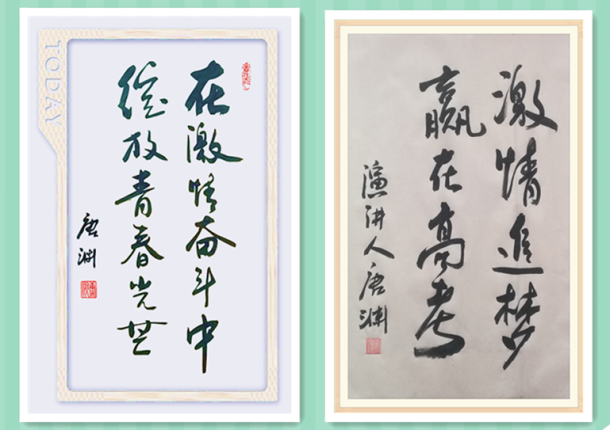 TODAY
在激情奋斗中
绽放青春光芒
唐渊
激情追梦
赢在高考
演讲人唐渊